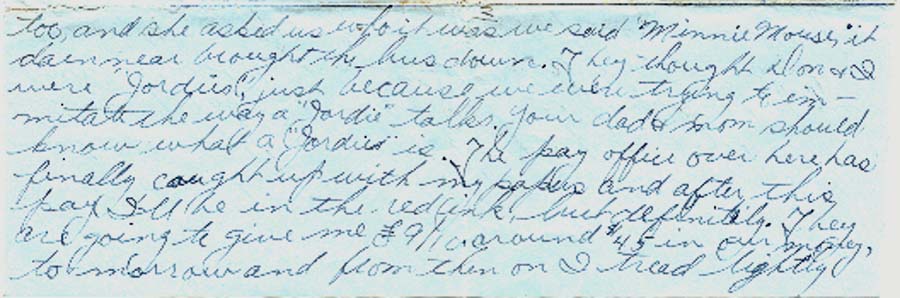 too, and she asked us who it was we said "Minnie Mouse," it
darn near brought the bus down. They thought Don & I
were "Jordies", just because we were trying to im-
mitate the way a "Jordie" talks. Your dad & mom should
know what a "Jordie" is. The pay office over here has
finally caught up with my papers and after this
pay I'll be in the red ink, but definitely. They
are going to give me £9/10. around $45 in our money,
to-morrow and from then on I tread lightly